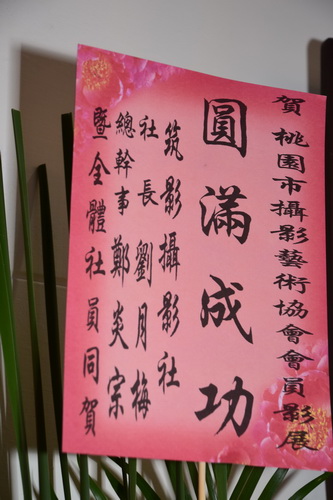 賀桃園市攝影藝術協會會員影展
圓滿成功
筑影攝影社
社長劉月梅
總幹事鄭炎宗
暨全體社員同賀